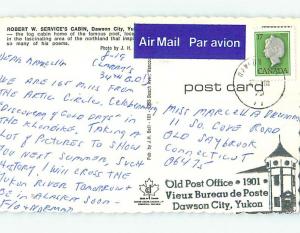 ROBERT W. SERVICE'S CABIN, Dawson City, Yukon
— the log cabin home of the famous poet, located
in the fascinating area of the northland that inspired
so many of his poems.
Photo by J. H.
Air Mail Par avion
17
CANADA
post card
8-19
WE ARE 165 MILES FROM
THE ARTIC CIRCLE, CELEBRATING
DISCOVERY OF GOLD DAY IN
THE KLONDIKE. TAKING A
LOT OF PICTURES TO SHOW
YOU NEXT SUMMER, SUCH
HISTORY, I WILL CROSS THE
YUKON RIVER TOMORROW
BE IN ALASKA SOON—
FLO & NORMAN
MISS MARCELLA
11 SO. COVE ROAD
OLD SAYBROOK
CONNECTICUT
06475
Old Post Office • 1901 •
Vieux Bureau de Poste
Dawson City, Yukon